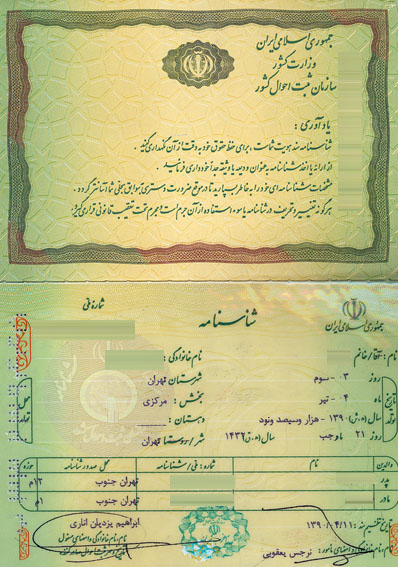 جمهوری اسلامی ایران
وزارت کشور
سازمان ثبت احوال کشور
یادآوری:
شناسنامه سند هویت شماست، برای حفظ حقوق خود به دقت از آن نگهداری کنید.
از ارائه یا اخذ شناسنامه به عنوان ودیعه یا وثیقه جداً خودداری فرمائید.
مشخصات شناسنامه‌ای خود را به خاطر بسپارید تا در مواقع ضرورت دسترسی به سوابق سجلی شما آسانتر گردد.
هرگونه تغییر و تحریف در شناسنامه یا سوء استفاده از آن جرم است و مجرم تحت تعقیب قانونی قرار می‌گیرد.
جمهوری اسلامی ایران
شناسنامه
شماره ملی
نام: آقا/خانم
نام خانوادگی:
روز ۳ - سوم
شهرستان: تهران
ماه ۴ - تیر
بخش: مرکزی
سال (ه.ش) ۱۳۹۰ - هزار و سیصد و نود
دهستان:
روز ۲۱ ماه رجب سال (ه.ق) ۱۴۳۲
شهر/روستا: تهران
والدین نام شماره: ملی/شناسنامه محل صدور شناسنامه حوزه
پدر تهران جنوب ۱۲م
مادر تهران جنوب ۱م
تاریخ تنظیم سند: ۱۳۹۰/۰۴/۱۱
ابراهیم یزدیان اناری
نام خانوادگی و امضای مأمور: نرجس یعقوبی
نام خانوادگی و امضای مسئول